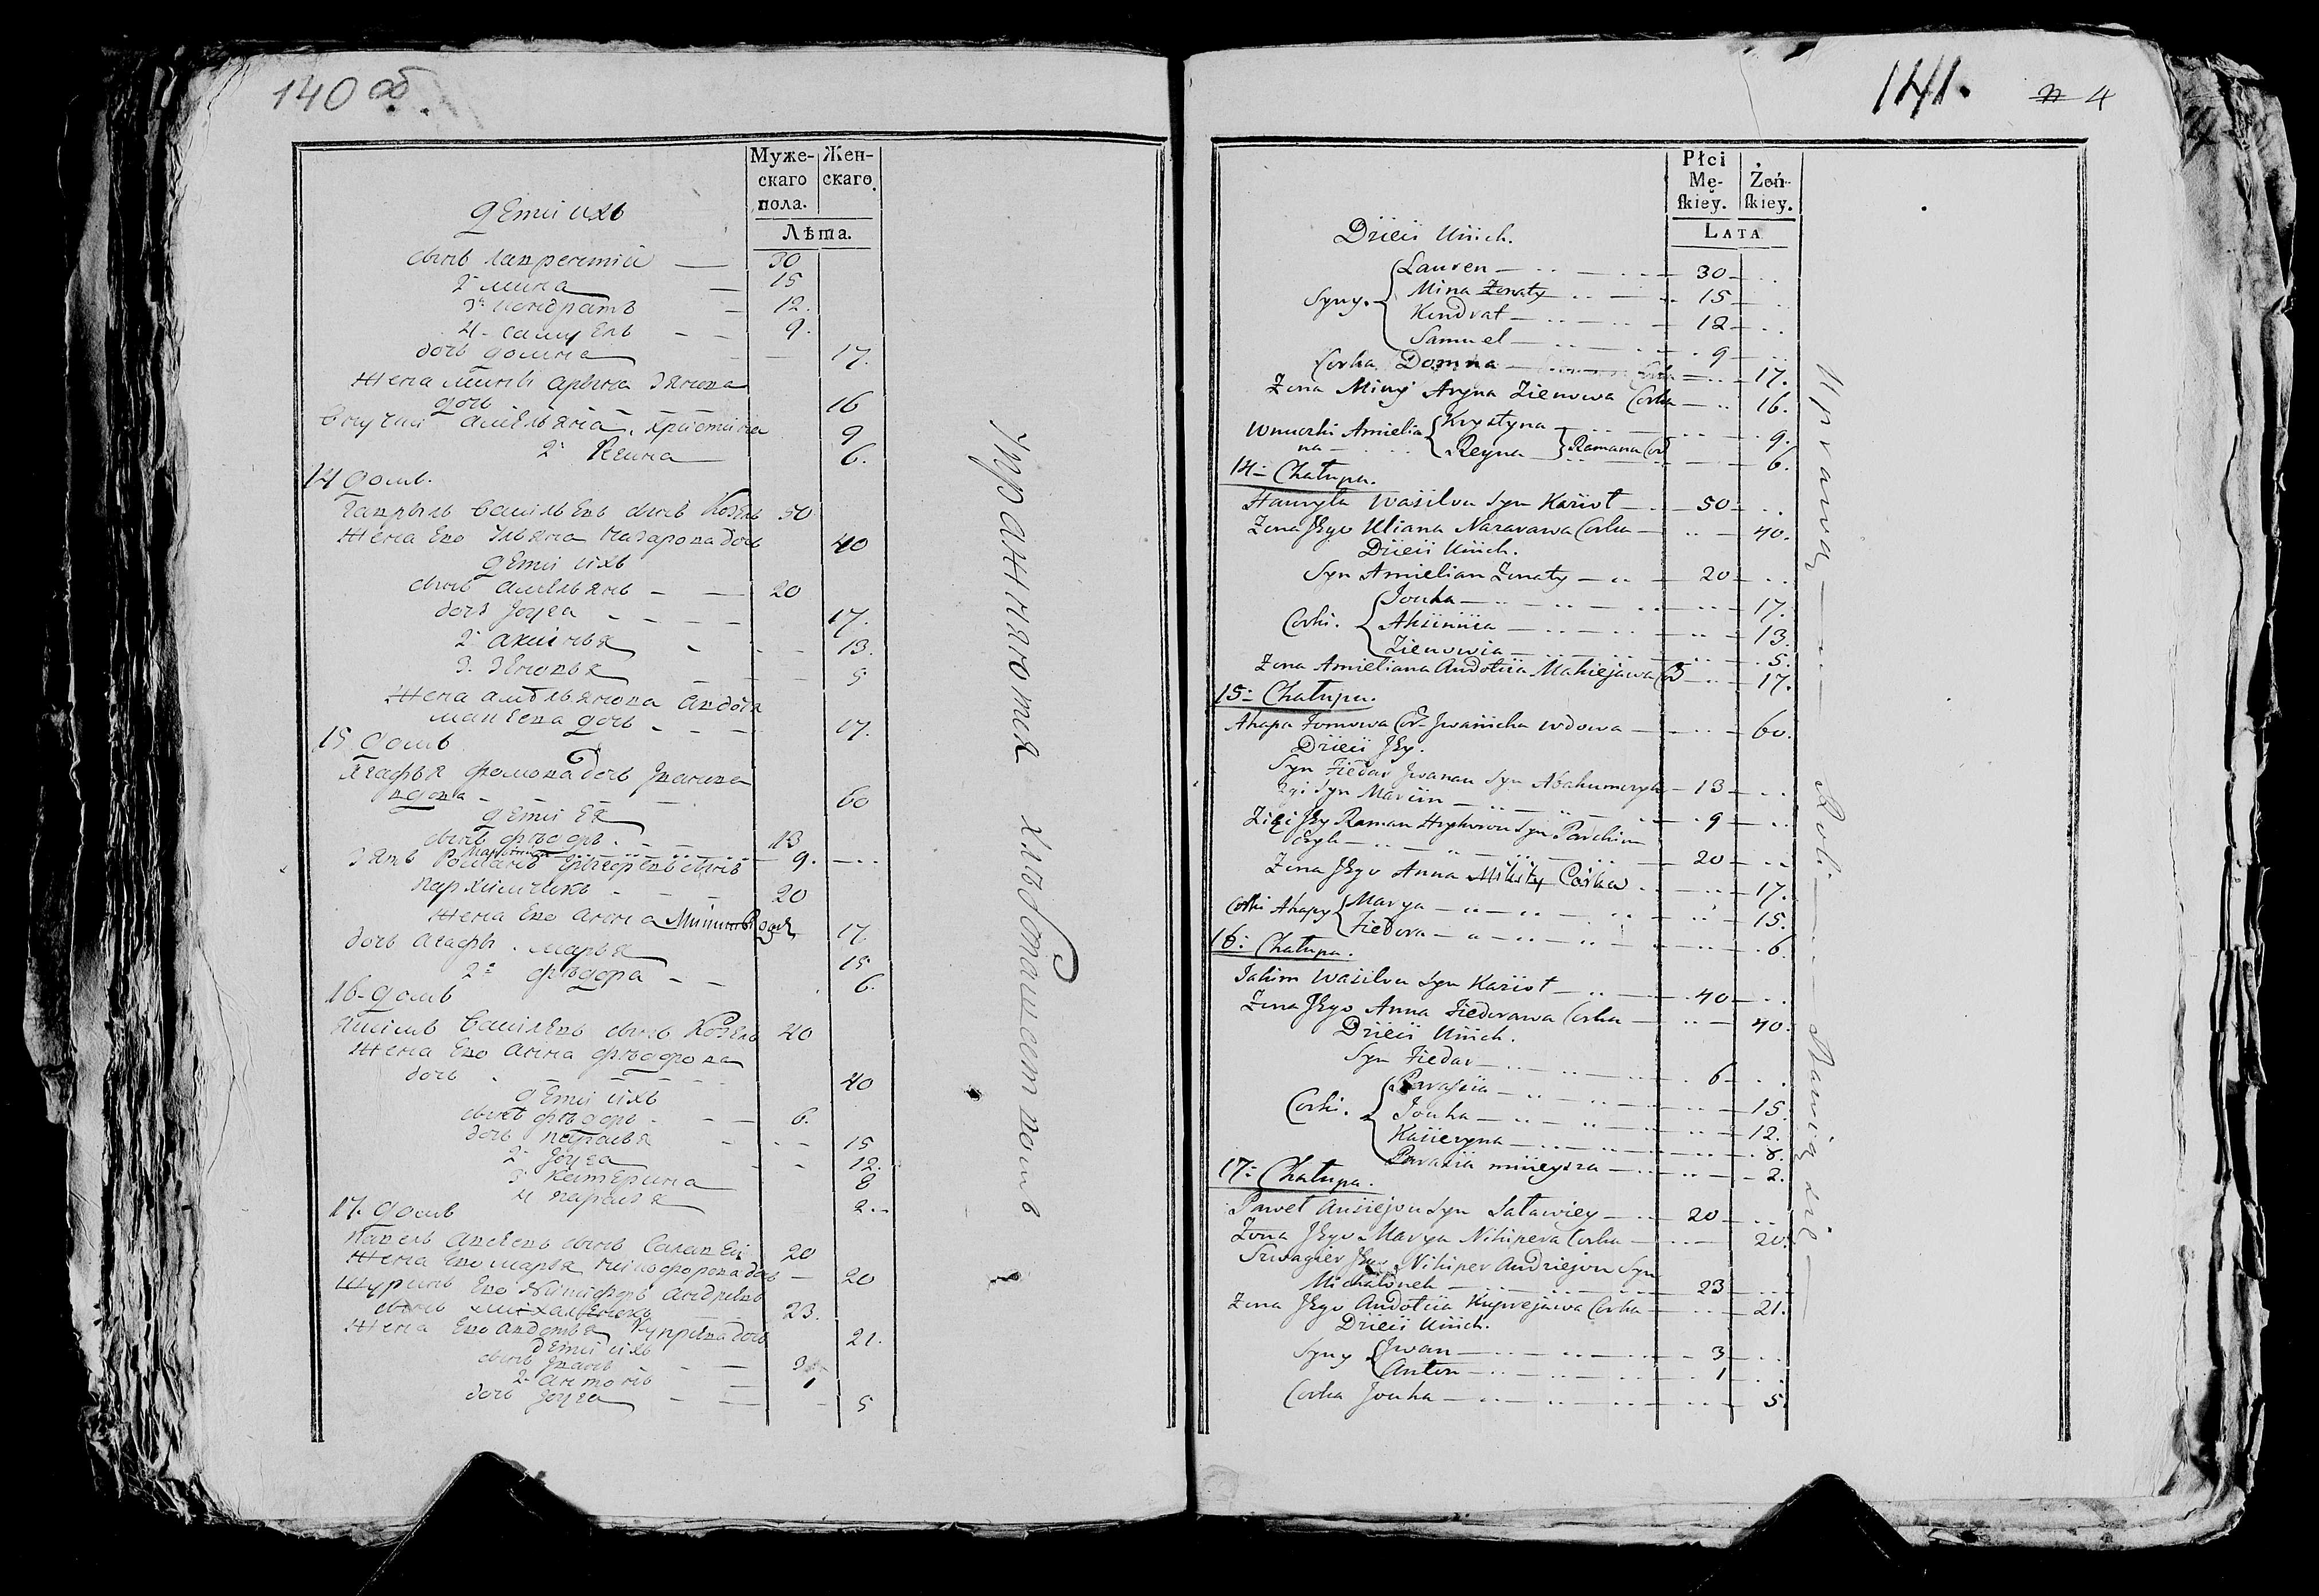 140 об.
Муже- Жен-
скаго скаго
пола.
Лѣта.
дети ихъ
сынъ лаврентий — 30
2 мина — 15
3 кондратъ — 12.
4 самуель — 9.
дочь домна — 17.
жена мины арына зянова
дочь 16
внучки амельяна христина 9
2 Регина 6.
14 домъ.
гаврыль васильевъ сынъ Козелъ 50
жена ево ульяна назарова дочь 40
дети ихъ
сынъ амельянъ — 20
дочь Јоуга — 17.
2 аксинья — 13.
3. зеновья — 5
жена амельянова авдотя
макеева дочь — 17.
15 домъ
агафья фомова дочь Јванива
вдова — 60
дети ея
сынъ фѣодоръ — 13
Мартинъ — 9.
зять Романъ григорьевъ сынъ
пархимчикъ — 20
жена ево анна 17
дочь агафьи марья 15
2 фѣодора — 6.
16 домъ
якимъ васильевъ сынъ Козелъ 40
жена ево анна фѣодорова
дочь 40
дети ихъ
сынъ фѣодоръ — 6.
дочь парасья — 15
2 Јоуга — 12.
3 катерина 8
4 парасья 2.
17. домъ
павелъ авсеевъ сынъ салавей 20
жена ево марья никофорова дочь — 20
шуринъ ево Никифоръ андреевъ
сынъ михаленокъ 23.
жена ево авдотья купреева дочь 21.
дети ихъ
сынъ Јванъ — 3
2 антонъ — 1
дочь Јоуга — 5
Упражняются хлебопашествомъ
141. 4
Płci
Mę- Żeń-
ſkiey. ſkiey.
LATA
Dzieci Unich.
Syny. Lauren — 30
Mina Zonaty — 15
Kindrat — 12
Samuel — 9
Corka Domna — 17.
Zona Miny Aryna Zienowa Corka — 16.
Wnuczki Amielia Krystyna — 9.
na — Reyna Ramana Cor 6.
14 Chałupa.
Hawryła Wasilou Syn Kazioł — 50
Zona Jego Uliana Nazarawa Corka — 40.
Dzieci Unich.
Syn Amielian Zonaty — 20
Corki. Jouha — 17.
Aksinnia — 13.
Zienowia — 5.
Zona Amieliana Audotia Makiejawa Cor — 17.
15 Chałupa.
Ahapa Fomowa Cor Jwanicha wdowa — 60.
Dzieci Jey.
Syn Fiedar Jwanau Syn Abakumczyk — 13
2gi Syn Marcin — 9
Zięć Jey Raman Hryhorou Syn Parchim
czyk — 20
Zona Jego Anna Mikity Corka — 17.
Corki Ahapy Marya — 15.
Fiedora — 6
16. Chałupa.
Jakim Wasilou Syn Kazioł — 40
Zona Jego Anna Fiedorawa Corka — 40.
Dzieci Unich.
Syn Fiedar — 6
Corki. Parasia — 15.
Jouha — 12.
Kacieryna — 8.
Parasia mnieysza — 2.
17 Chałupa.
Paweł Ausiejou Syn Saławiey — 20
Zona Jego Marya Nikiperа Corka — 20.
Szwagier Jego Nikiper Andriejou Syn
Michalonek — 23
Zona Jego Audotia Kuprejawa Corka — 21.
Dzieci Unich.
Syny Jwan — 3
Anton — 1
Corka Jouha — 5.
Uprawą — Roli — bawią się